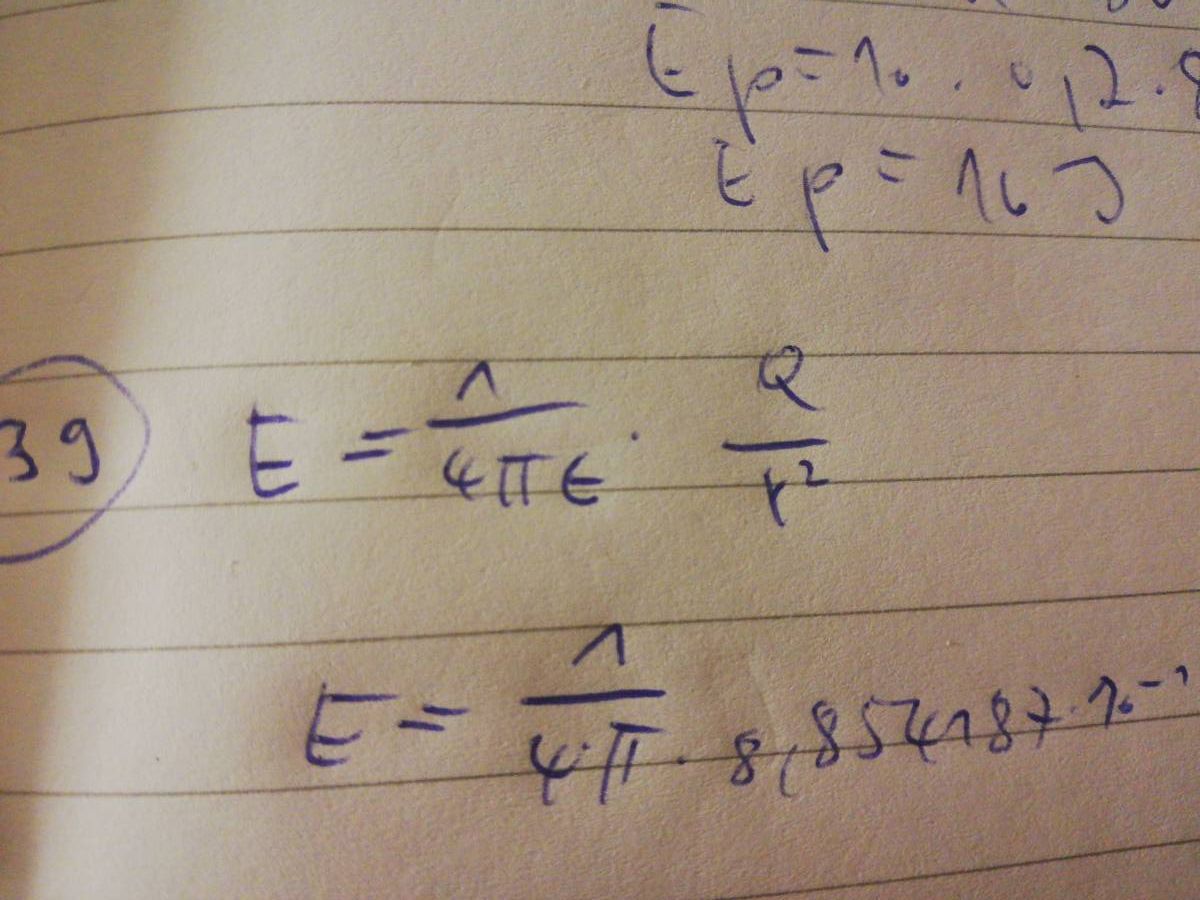 Ep = 10 . 0,2 . 8
Ep = 16 J
39 E = 1/4πϵ . Q/r²
E = 1/4.π . 8,854187 . 10⁻¹